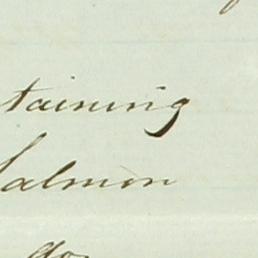 taining
Salmon
do